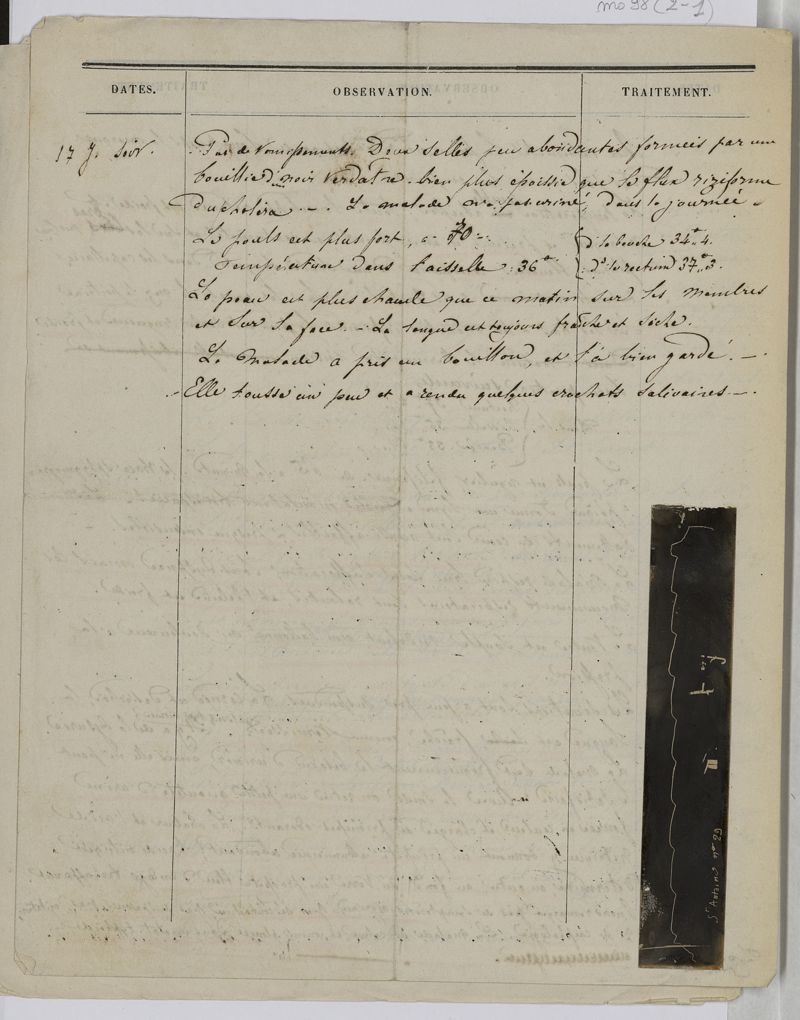 mo 98 (2-1)
DATES. OBSERVATION. TRAITEMENT.
17 J. Soir. Pas de vomissements. Deux selles peu abondantes formées par une
bouillie d'un noir verdâtre bien plus épaisse que le flux riziforme
du choléra. — La malade n'a pas uriné, dans la journée.
Le pouls est plus fort, à 70.
Température dans l'aisselle : 36°
d° la bouche 34° 4.
d° le rectum 37° 3.
La peau est plus chaude que ce matin sur les membres
et sur la face. — La langue est toujours fraîche et sèche.
La malade a pris un bouillon, et l'a bien gardé. —
Elle tousse un peu et a rendu quelques crachats salivaires —.
II
St Antoine no 29